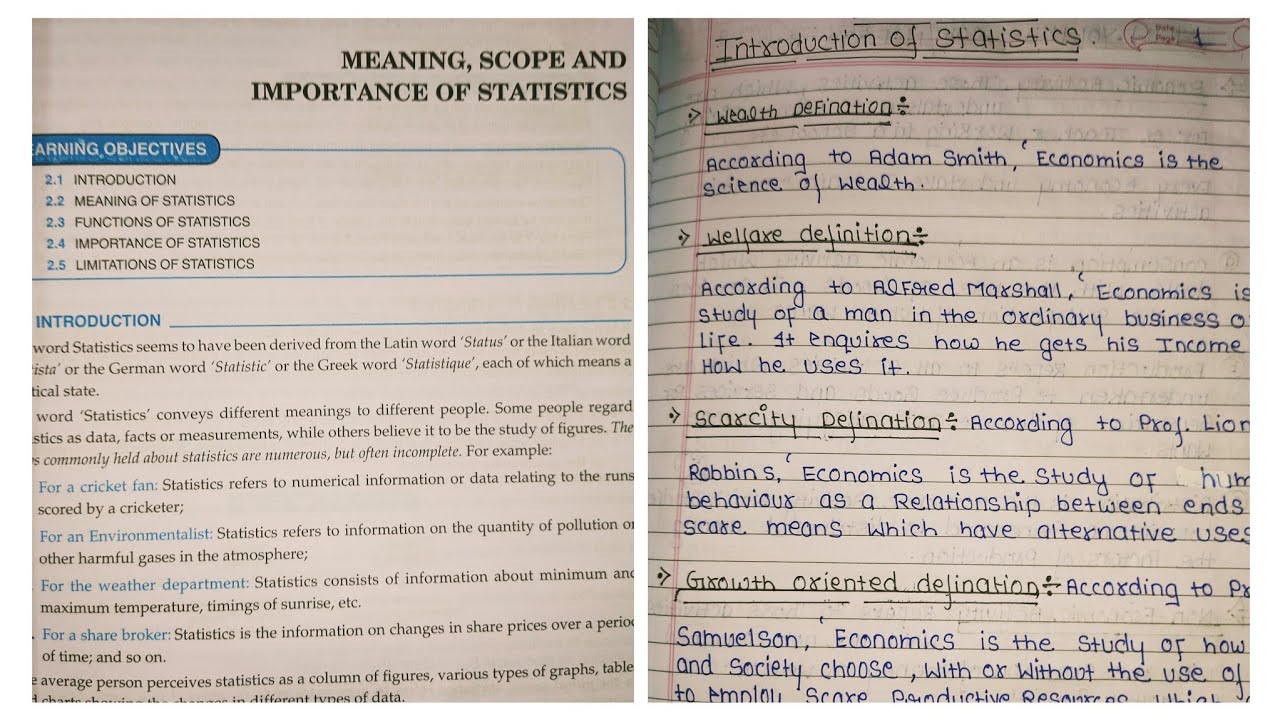 MEANING, SCOPE AND
IMPORTANCE OF STATISTICS
ARNING OBJECTIVES
2.1 INTRODUCTION
2.2 MEANING OF STATISTICS
2.3 FUNCTIONS OF STATISTICS
2.4 IMPORTANCE OF STATISTICS
2.5 LIMITATIONS OF STATISTICS
INTRODUCTION
word Statistics seems to have been derived from the Latin word 'Status' or the Italian word
ista' or the German word 'Statistic' or the Greek word 'Statistique', each of which means a
tical state.
word 'Statistics' conveys different meanings to different people. Some people regard
stics as data, facts or measurements, while others believe it to be the study of figures. The
s commonly held about statistics are numerous, but often incomplete. For example:
For a cricket fan: Statistics refers to numerical information or data relating to the runs
scored by a cricketer;
For an Environmentalist: Statistics refers to information on the quantity of pollution or
other harmful gases in the atmosphere;
For the weather department: Statistics consists of information about minimum and
maximum temperature, timings of sunrise, etc.
For a share broker: Statistics is the information on changes in share prices over a perio
of time; and so on.
e average person perceives statistics as a column of figures, various types of graphs, table
d charts showing the changes in different types of data.
Introduction of Statistics.
Date
Page 1
Wealth Defination÷
According to Adam Smith, 'Economics is the
science of wealth.
Welfare definition÷
According to Alfred Marshall, 'Economics is
study of a man in the ordinary business o
life. It enquires how he gets his Income
How he uses it.
Scarcity Defination÷ According to Prof. Lion
Robbins, 'Economics is the study of hum
behaviour as a Relationship between ends
scare means which have alternative uses
Growth oriented defination÷ According to Pr
Samuelson, 'Economics is the study of how
and Society choose, with or without the use of
to Employ Scare Productive Resources which